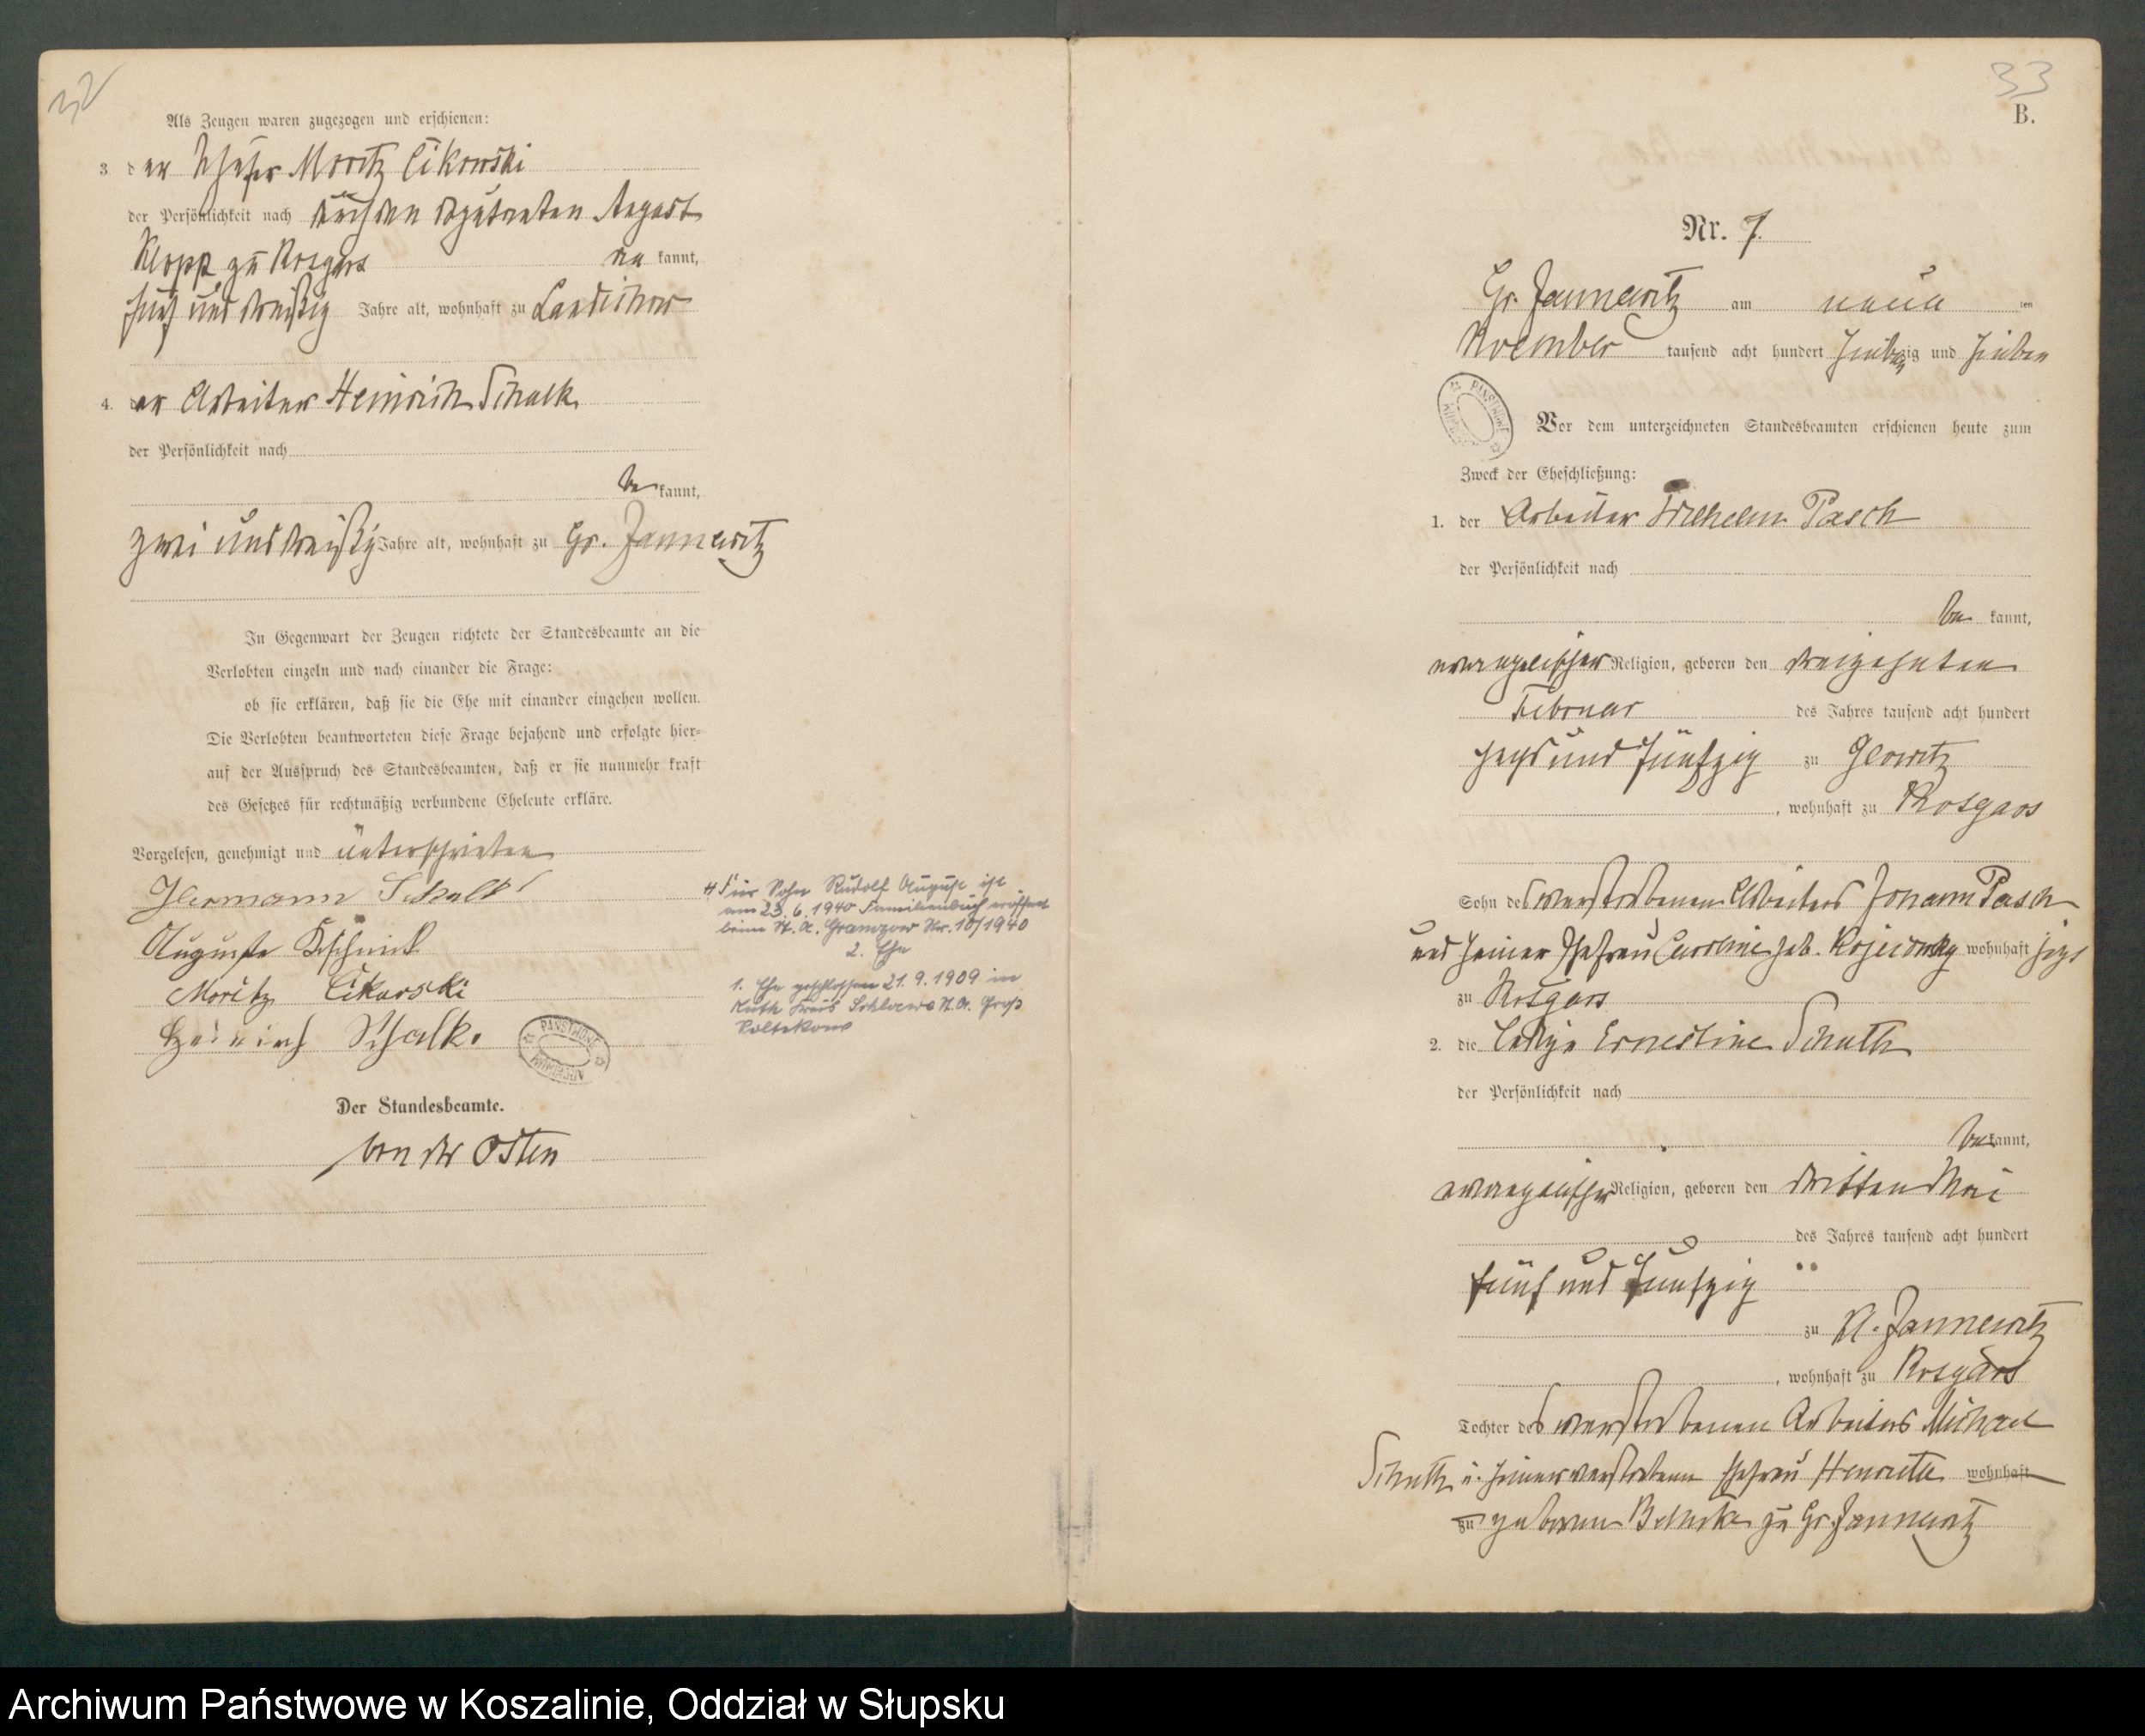 32
Als Zeugen waren zugezogen und erschienen:
3. der Schäfer Moritz Cikowski
der Persönlichkeit nach durch den August
Klopp zu Rosgars kannt,
fünf und dreißig Jahre alt, wohnhaft zu Landechow
4. der Arbeiter Heinrich Schalk
der Persönlichkeit nach
be kannt,
zwei und dreißig Jahre alt, wohnhaft zu Gr. Jannewitz
In Gegenwart der Zeugen richtete der Standesbeamte an die
Verlobten einzeln und nach einander die Frage:
ob sie erklären, daß sie die Ehe mit einander eingehen wollen.
Die Verlobten beantworteten diese Frage bejahend und erfolgte hier-
auf der Ausspruch des Standesbeamten, daß er sie nunmehr kraft
des Gesetzes für rechtmäßig verbundene Eheleute erkläre.
Vorgelesen, genehmigt und unterschrieben
Hermann Schalk
Auguste
Moritz Cikowski
Heinrich Schalk.
Der Standesbeamte.
von der Osten
Für Sohn Rudolf August ist
am 23.6.1940 Familienbuch eröffnet
beim St. A. Gramzow Nr. 10/1940
2. Ehe
1. Ehe geschlossen 21.9.1909 in
Kuth Kreis Schlawe St. A. Groß
Soltikow
33
B.
Nr. 7.
Gr. Jannewitz am neun ten
November tausend acht hundert siebenzig und sieben
Vor dem unterzeichneten Standesbeamten erschienen heute zum
Zweck der Eheschließung:
1. der Arbeiter Wilhelm Pasch
der Persönlichkeit nach
be kannt,
evangelischer Religion, geboren den dreizehnten
Februar des Jahres tausend acht hundert
sechs und fünfzig zu Glowitz
, wohnhaft zu Rosgars
Sohn des verstorbenen Arbeiters Johann Pasch
und seiner Ehefrau Caroline geb. wohnhaft jetzt
zu Rosgars
2. die ledige Ernestine Schuth
der Persönlichkeit nach
be kannt,
evangelischer Religion, geboren den dritten Mai
des Jahres tausend acht hundert
fünf und fünfzig
zu Kl. Jannewitz
, wohnhaft zu Rosgars
Tochter des verstorbenen Arbeiters Michael
Schuth u. seiner verstorbenen Ehefrau Henriette wohnhaft
zu geborenen zu Gr. Jannewitz
Archiwum Państwowe w Koszalinie, Oddział w Słupsku